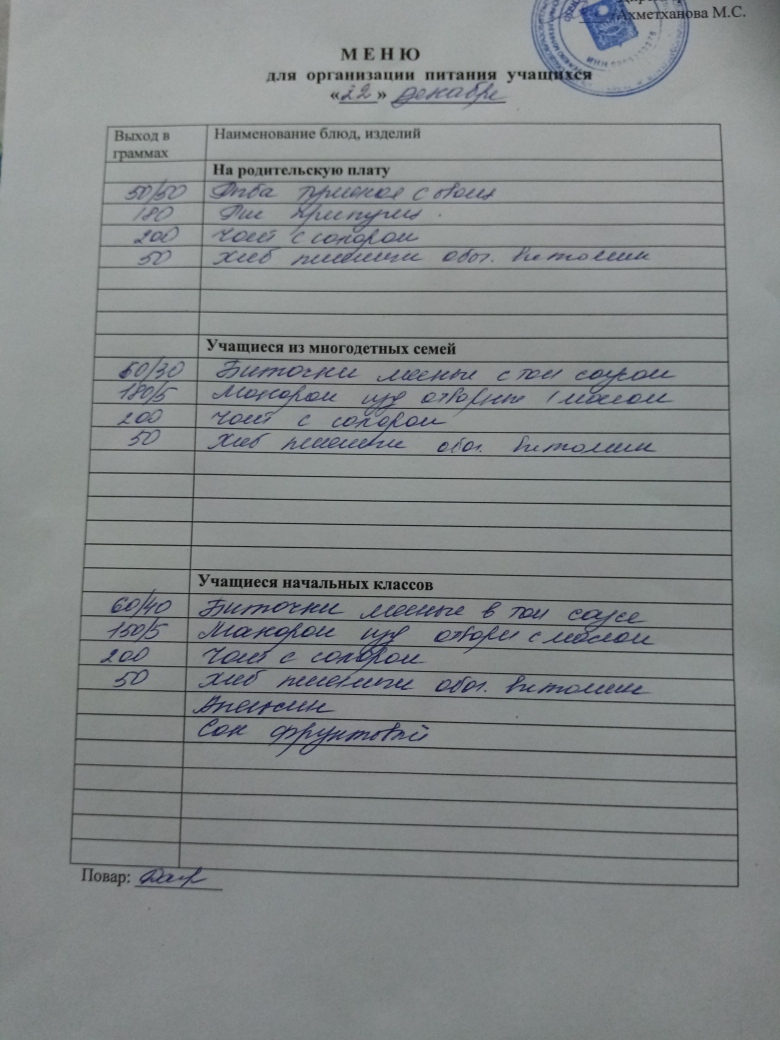 Ахметханова М.С.
МЕНЮ
для организации питания учащихся
«22» декабря
Выход в граммах Наименование блюд, изделий
На родительскую плату
50/50 Рыба с овощ
180 Рис
200 Чай с сахаром
50 Хлеб пшенич обог. витамин
Учащиеся из многодетных семей
60/30 Биточки мясные с том соусом
180/5 Макарон изд отварные с маслом
200 Чай с сахаром
50 Хлеб пшенич обог. витамин
Учащиеся начальных классов
60/40 Биточки мясные в том соусе
150/5 Макарон изд отварн с маслом
200 Чай с сахаром
50 Хлеб пшенич обог. витамин
Апельсин
Сок фруктовый
Повар: